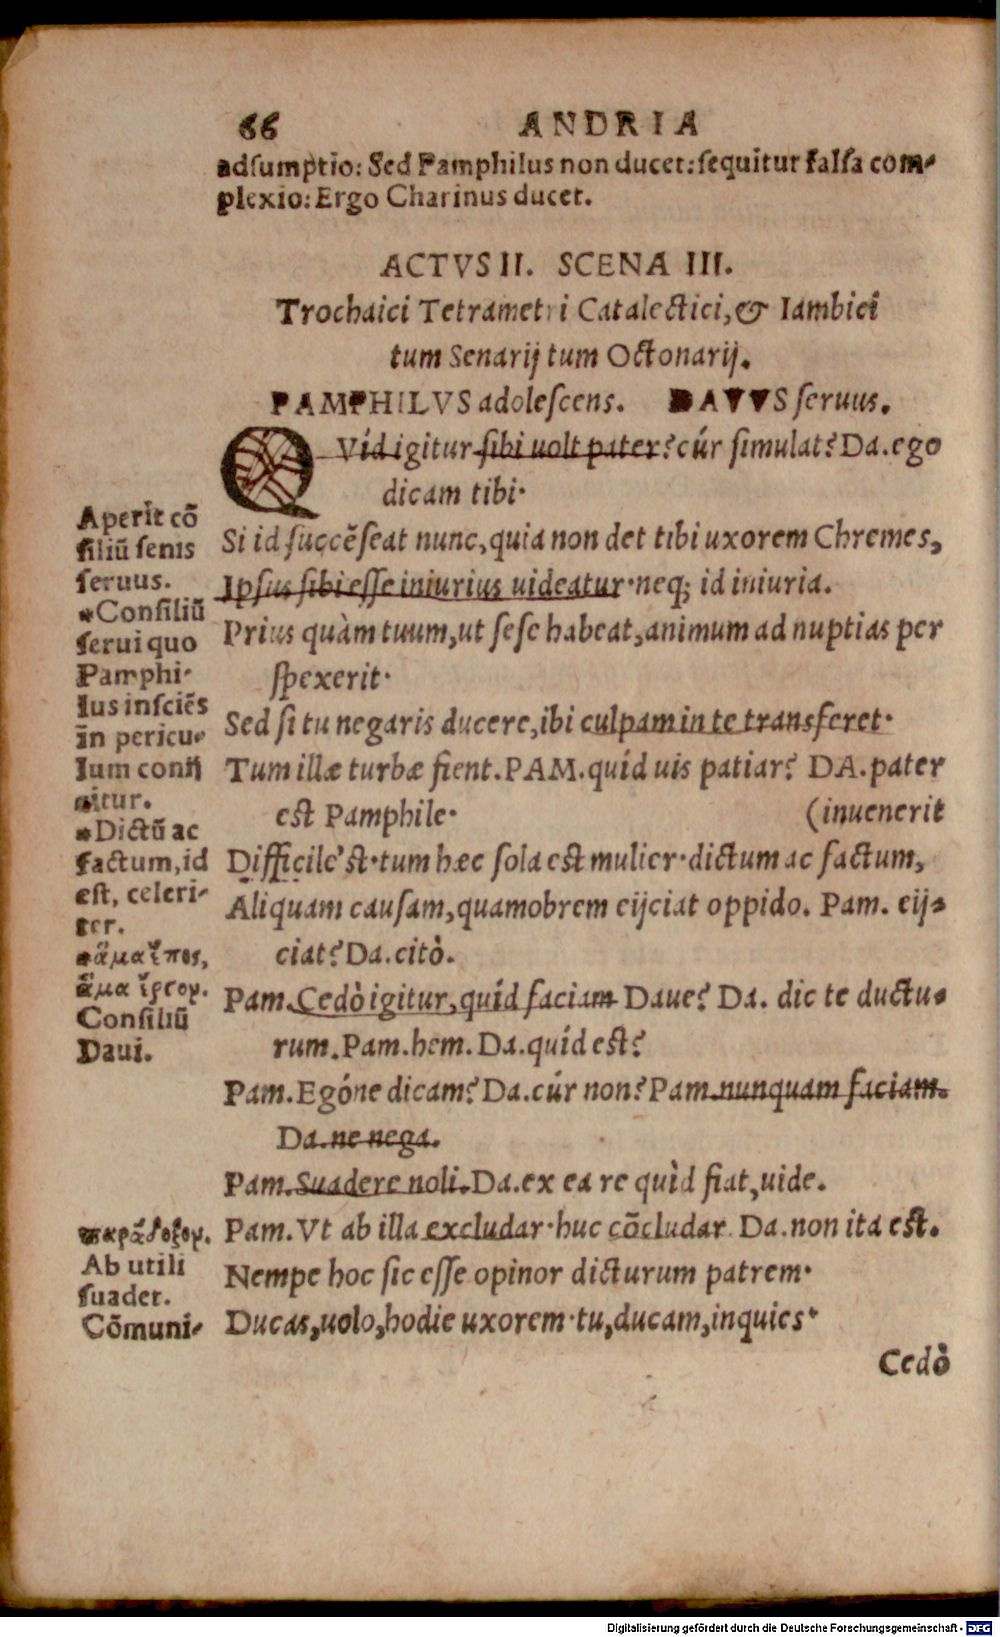 66 ANDRIA
adsumptio: Sed Pamphilus non ducet: sequitur falsa com-
plexio: Ergo Charinus ducet.
ACTVS II. SCENA III.
Trochaici Tetrametri Catalectici, & Iambici
tum Senarij tum Octonarij.
PAMPHILVS adolescens. DAVVS seruus.
QVíd igitur sibi uolt pater? cúr simulat? Da. ego
dicam tibi·
Si id succẽseat nunc, quia non det tibi uxorem Chremes,
Ipsus sibi esse iniurius uideatur· neq; id iniuria.
Prius quàm tuum, ut sese habeat, animum ad nuptias per
spexerit·
Sed si tu negaris ducere, ibi culpam in te transferet·
Tum illæ turbæ fient. PAM. quid uis patiar? DA. pater
est Pamphile· (inuenerit
Difficile'st· tum hæc sola est mulier· dictum ac factum,
Aliquam causam, quamobrem eijciat oppido. Pam. eij-
ciat? Da. citò.
Pam. Cedò igitur, quíd faciam Daue? Da. dic te ductu-
rum. Pam. hem. Da. quíd est?
Pam. Egóne dicam? Da. cúr non? Pam. nunquam faciam.
Da. ne nega.
Pam. Suadere noli. Da. ex ea re quìd fiat, uide.
Pam. Vt ab illa excludar· huc cõcludar. Da. non ita est.
Nempe hoc sic esse opinor dicturum patrem·
Ducas, uolo, hodie uxorem· tu, ducam, inquies·
Cedò
Aperit cõ
siliũ senis
seruus.
*Consiliũ
serui quo
Pamphi-
lus insciẽs
in pericu-
lum conij
citur.
*Dictũ ac
factum, id
est, celeri-
ter.
*ἅμα ἔπος,
ἅμα ἔργον.
Consiliũ
Daui.
παράδοξον.
Ab utili
suadet.
Cõmuni-
Digitalisierung gefördert durch die Deutsche Forschungsgemeinschaft - DFG